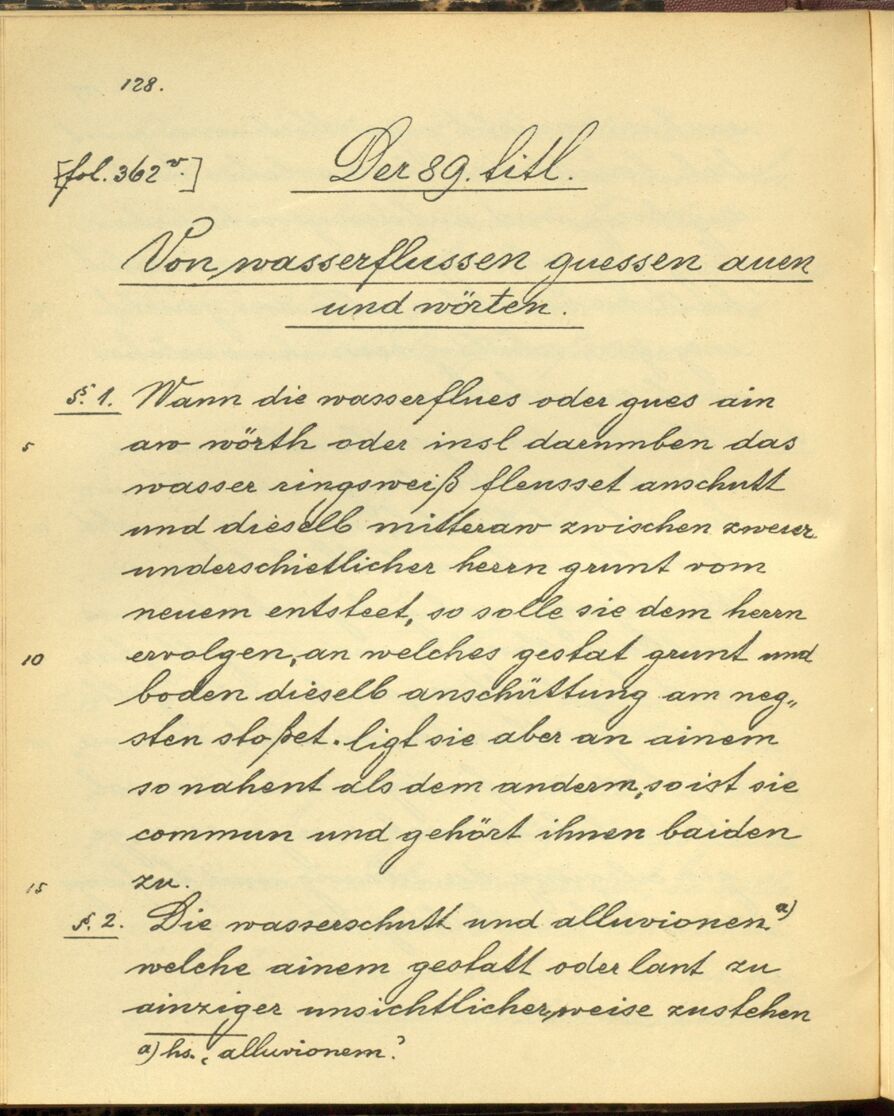 128.
[fol. 362v.]
Der 89. titl.
Von wasserflussen guessen auen
und wörten.
§. 1. Wann die wasserflues oder gues ain
5 aw wörth oder insl darumben das
wasser ringsweiß fleusset anschutt
und dieselb mitteraw zwischen zweier
underschietlicher herrn grunt vom
neuem entsteet, so solle sie dem herrn
10 ervolgen, an welches gestat grunt und
boden dieselb anschüttung am neg„
sten stoßet. ligt sie aber an ainem
so nahent als dem anderm, so ist sie
commun und gehört ihnen baiden
15 zu.
§. 2. Die wasserschutt und alluvionen a)
welche ainem gestatt oder lant zu
ainziger unsichtlicher weise zustehen
a) hs. „alluvionem“